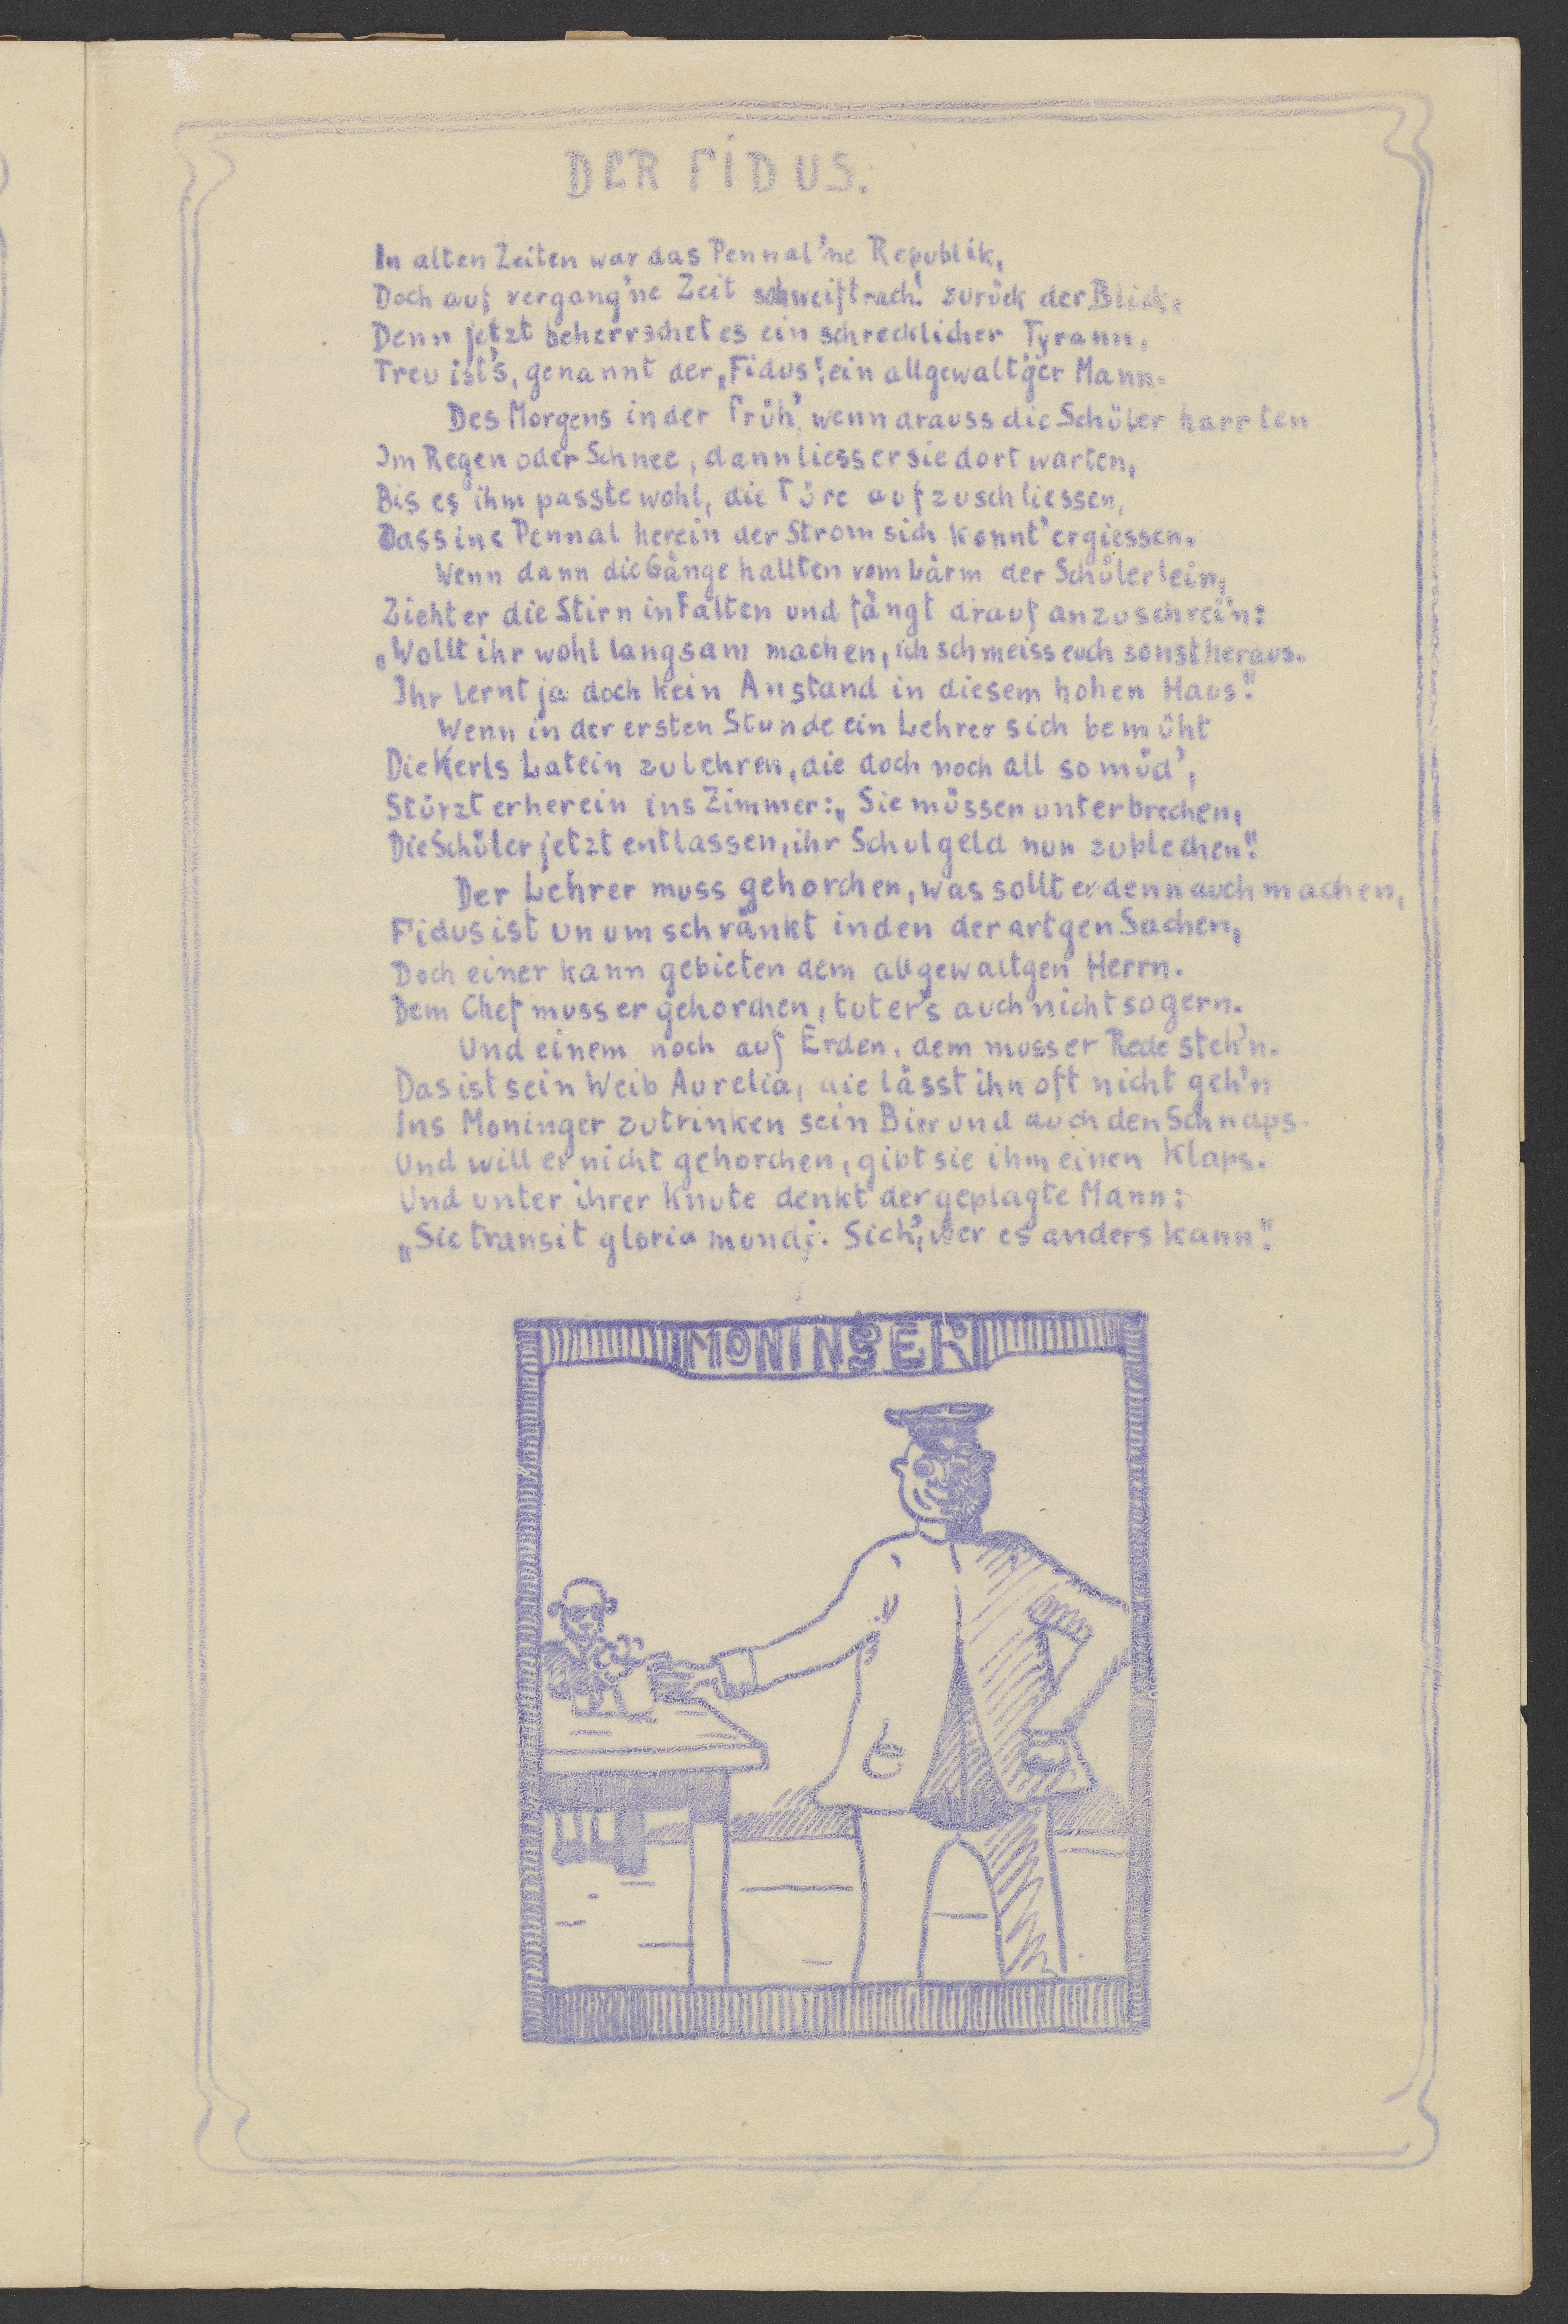 DER FIDUS.
In alten Zeiten war das Pennal 'ne Republik,
Doch auf vergang'ne Zeit schweift nach! zurück der Blick.
Denn jetzt beherrschet es ein schrecklicher Tyrann,
Treu ist's, genannt der „Fidus", ein allgewalt'ger Mann.
Des Morgens in der Früh', wenn drauss die Schüler harrten
Im Regen oder Schnee, dann liess er sie dort warten,
Bis es ihm passte wohl, die Türe aufzuschliessen,
Dass ins Pennal herein der Strom sich konnt' ergiessen.
Wenn dann die Gänge hallten vom Lärm der Schülerlein,
Zieht er die Stirn in Falten und fängt drauf an zu schrei'n:
„Wollt ihr wohl langsam machen, ich schmeiss euch sonst heraus.
Ihr lernt ja doch kein Anstand in diesem hohen Haus."
Wenn in der ersten Stunde ein Lehrer sich bemüht
Die Kerls Latein zu lehren, die doch noch all so müd',
Stürzt er herein ins Zimmer: „Sie müssen unterbrechen,
Die Schüler jetzt entlassen, ihr Schulgeld nun zu blechen."
Der Lehrer muss gehorchen, was sollt er denn auch machen,
Fidus ist unumschränkt in den derartgen Sachen,
Doch einer kann gebieten dem allgewaltgen Herrn.
Dem Chef muss er gehorchen, tut er's auch nicht so gern.
Und einem noch auf Erden, dem muss er Rede steh'n.
Das ist sein Weib Aurelia, die lässt ihn oft nicht geh'n
Ins Moninger zu trinken sein Bier und auch den Schnaps.
Und will er nicht gehorchen, gibt sie ihm einen Klaps.
Und unter ihrer Knute denkt der geplagte Mann:
„Sic transit gloria mundi. Sich', wer es anders kann."
MONINGER